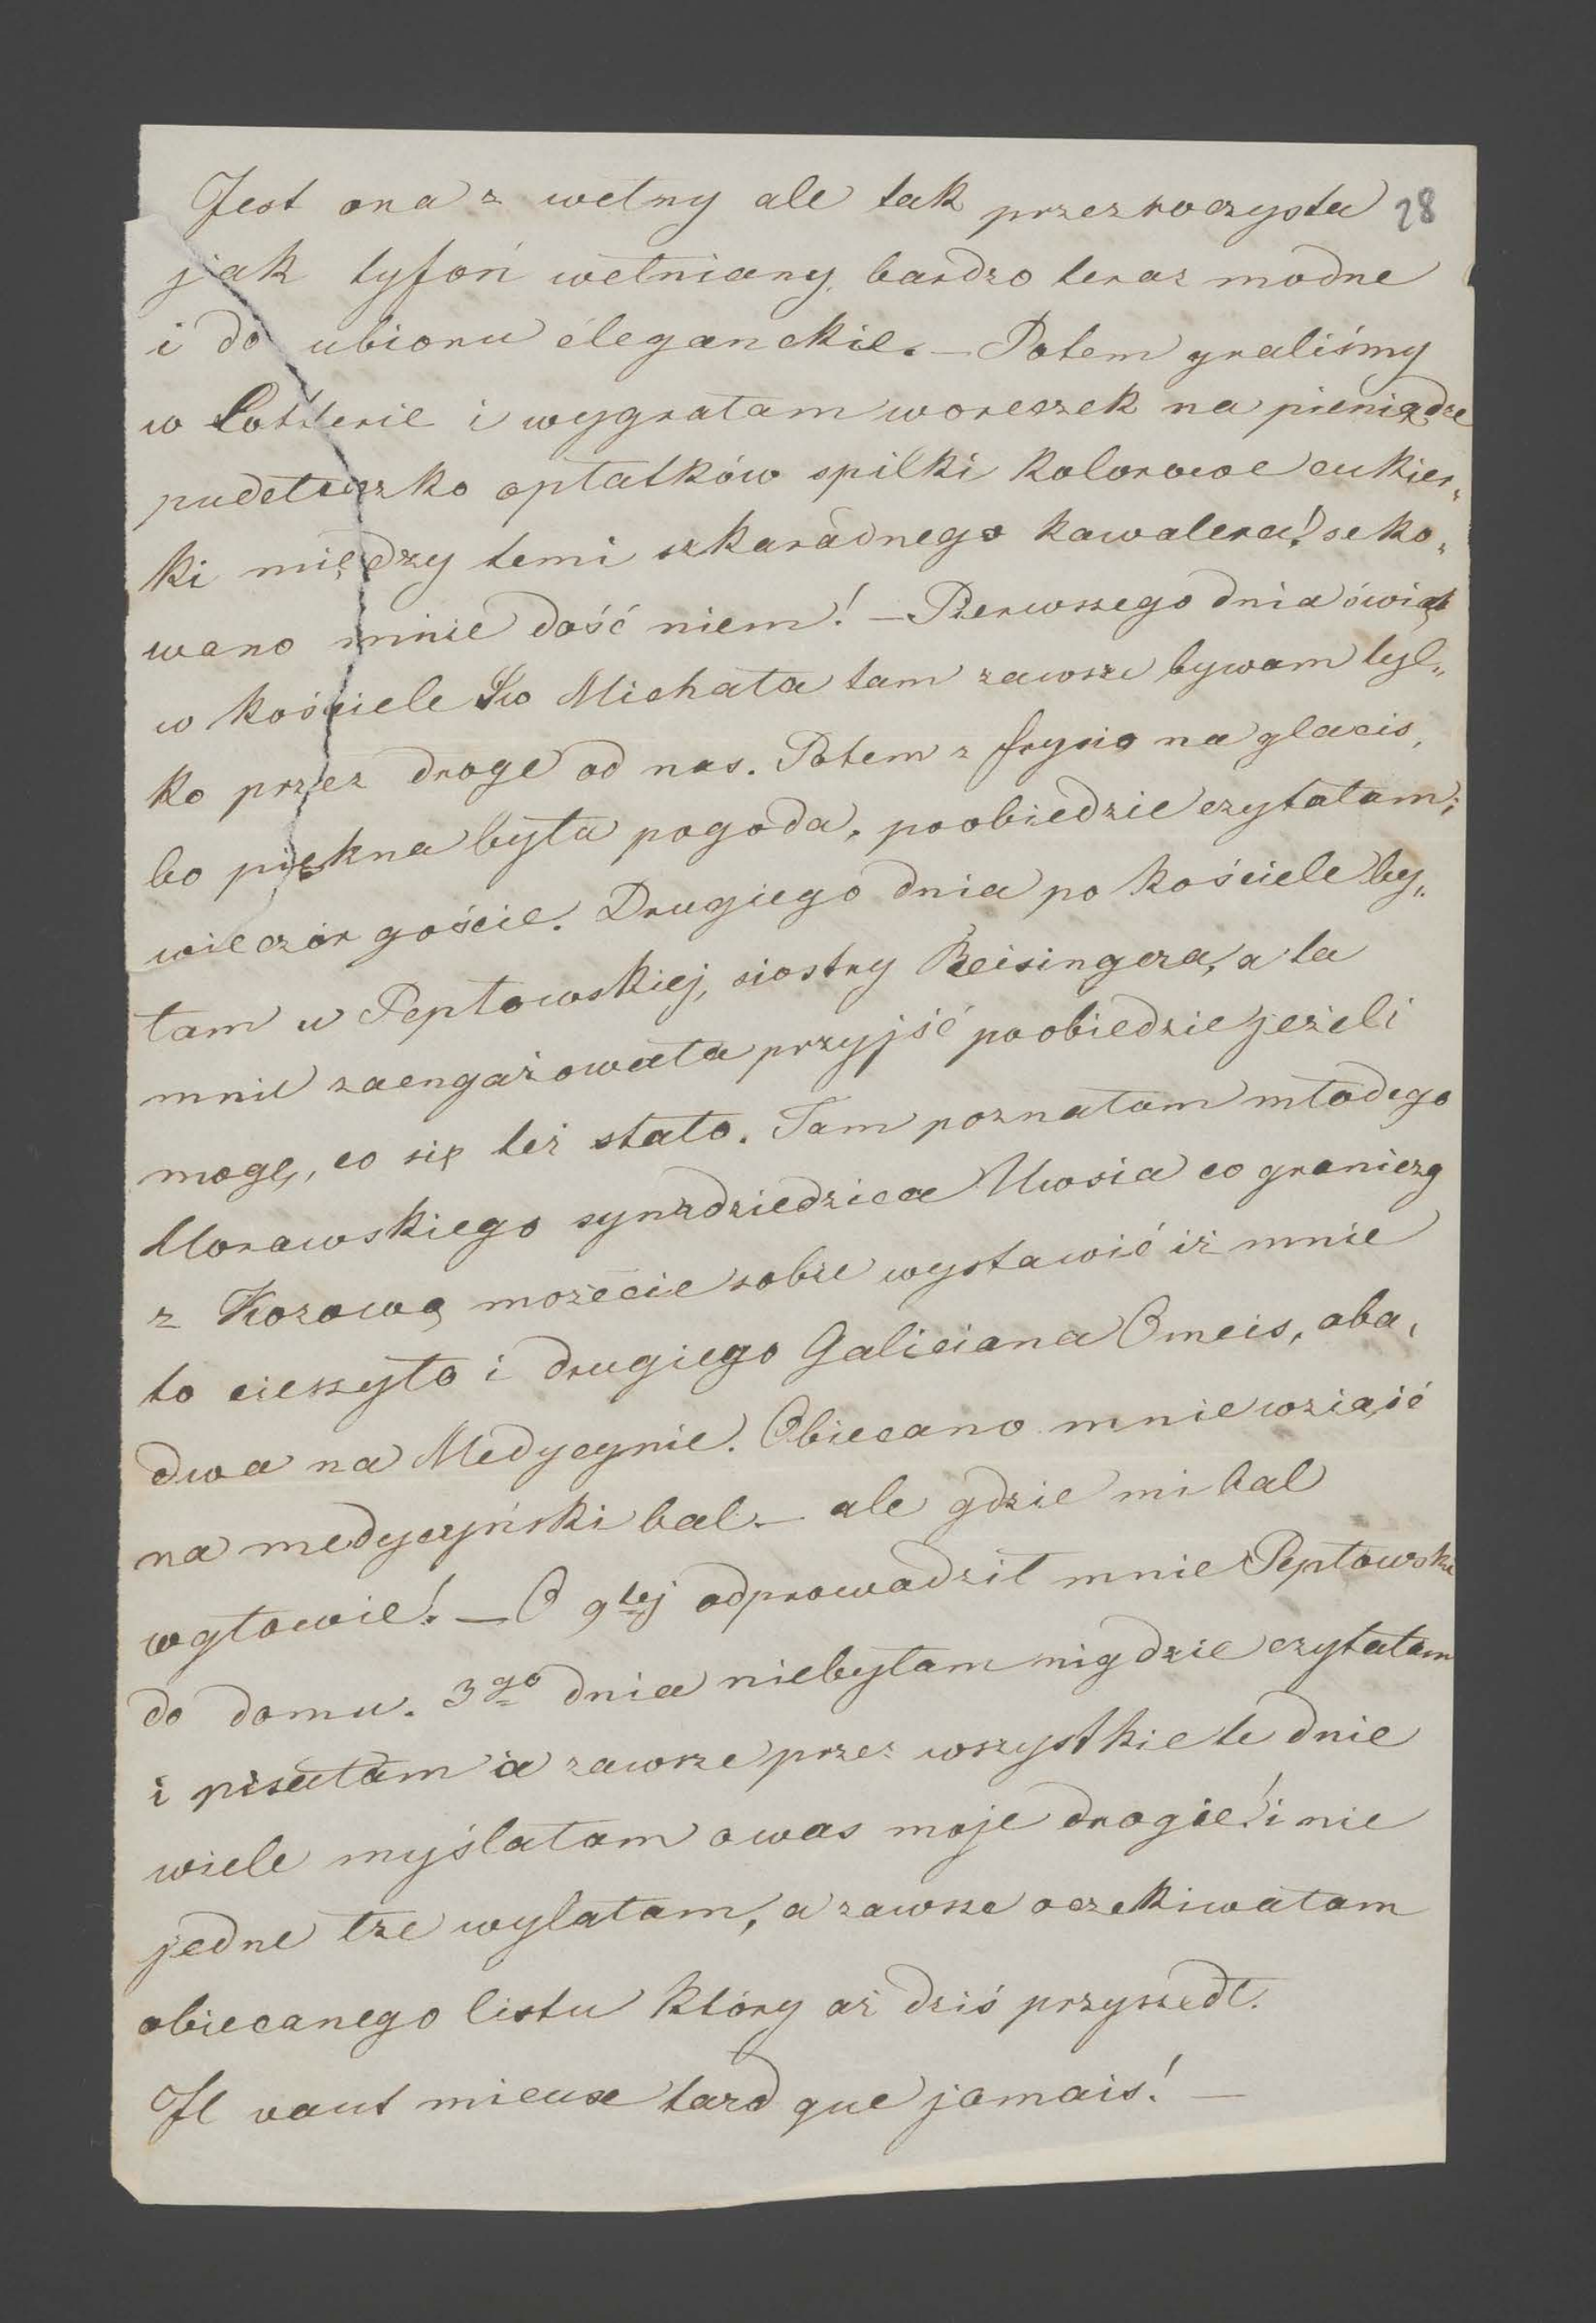 Jest ona z wełny ale tak przezroczysta 28
jak tyfoń wełniany, bardzo teraz modne
i do ubioru eleganckie. — Potem graliśmy
w Lotterie i wygrałam woreczek na pieniądze
pudełeczko opłatków spilki kolorowe cukier„
ki między temi szkaradnego kawalera! seko„
wano mnie dość niem! — Pierwszego dnia świąt
w kościele Sw Michała tam zawsze bywam tyl„
ko przez droge od nas. Potem z frysio na glacis,
bo piękna była pogoda, poobiedzie czytałam;
wieczór goście. Drugiego dnia po kościele by„
łam u Pepłowskiej, siostry Reisingera, a ta
mnie zaengażowała przyjść poobiedzie jeżeli
mogę, co się też stało. Tam poznałam młodego
Morawskiego syna dziedzica Uwsia co graniczy
z Kozową możecie sobie wystawić iż mnie
to cieszyło i drugiego Galiciana Omeis, oba„
dwa na Medycynie. Obiecano mnie wziąść
na medyczyński bal — ale gdzie mi bal
w głowie! — O 9tej odprowadził mnie Pepłowski
do domu. 3go dnia niebyłam nigdzie czytałam
i pisałam a zawsze przez wszystkie te dnie
wiele myślałam o was moje drogie! i nie
jedne łze wylałam, a zawsze oczekiwałam
obiecanego listu który aż dziś przyszedł.
Il vaut mieux tard que jamais! —